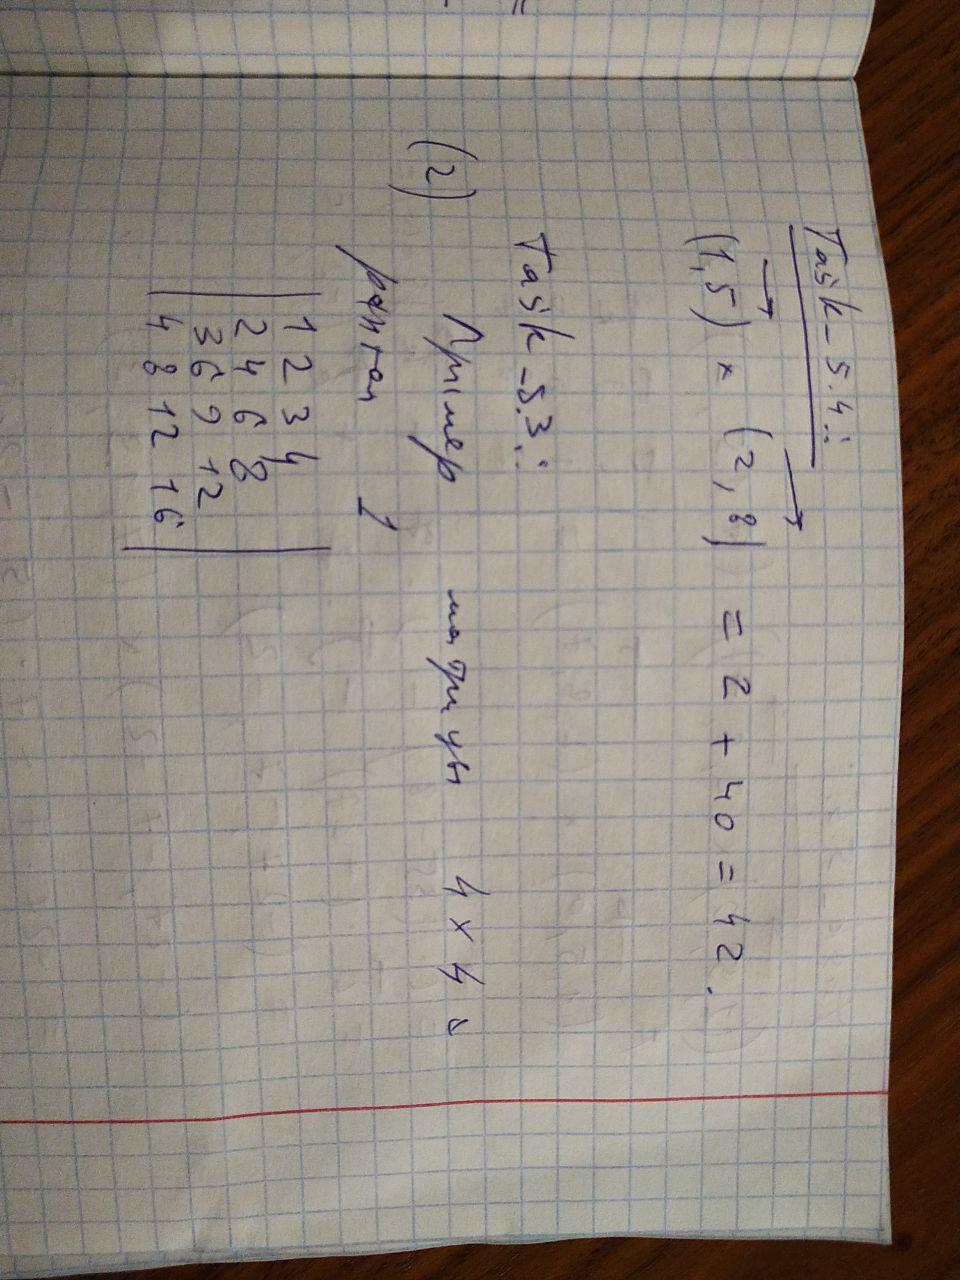 Task-5.4.:
(1,5) × (2,8) = 2 + 40 = 42.
Task-5.3.:
(2) Пример матрицы 4 × 4 с
рангом 1
1 2 3 4
2 4 6 8
3 6 9 12
4 8 12 16